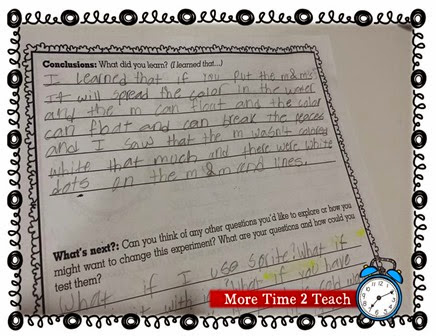 Conclusions: What did you learn? (I learned that...)
I learned that if you put the m&m's
It will spread the color in the water
and the m can float and the color
can float and can break the
and I saw that the m wasn't colored
white that much and there were white
dots on the m&m and lines.
What's next?: Can you think of any other questions you'd like to explore or how you
might want to change this experiment? What are your questions and how could you
test them?
What if I use sprite? What if
with if you have
cold
More Time 2 Teach